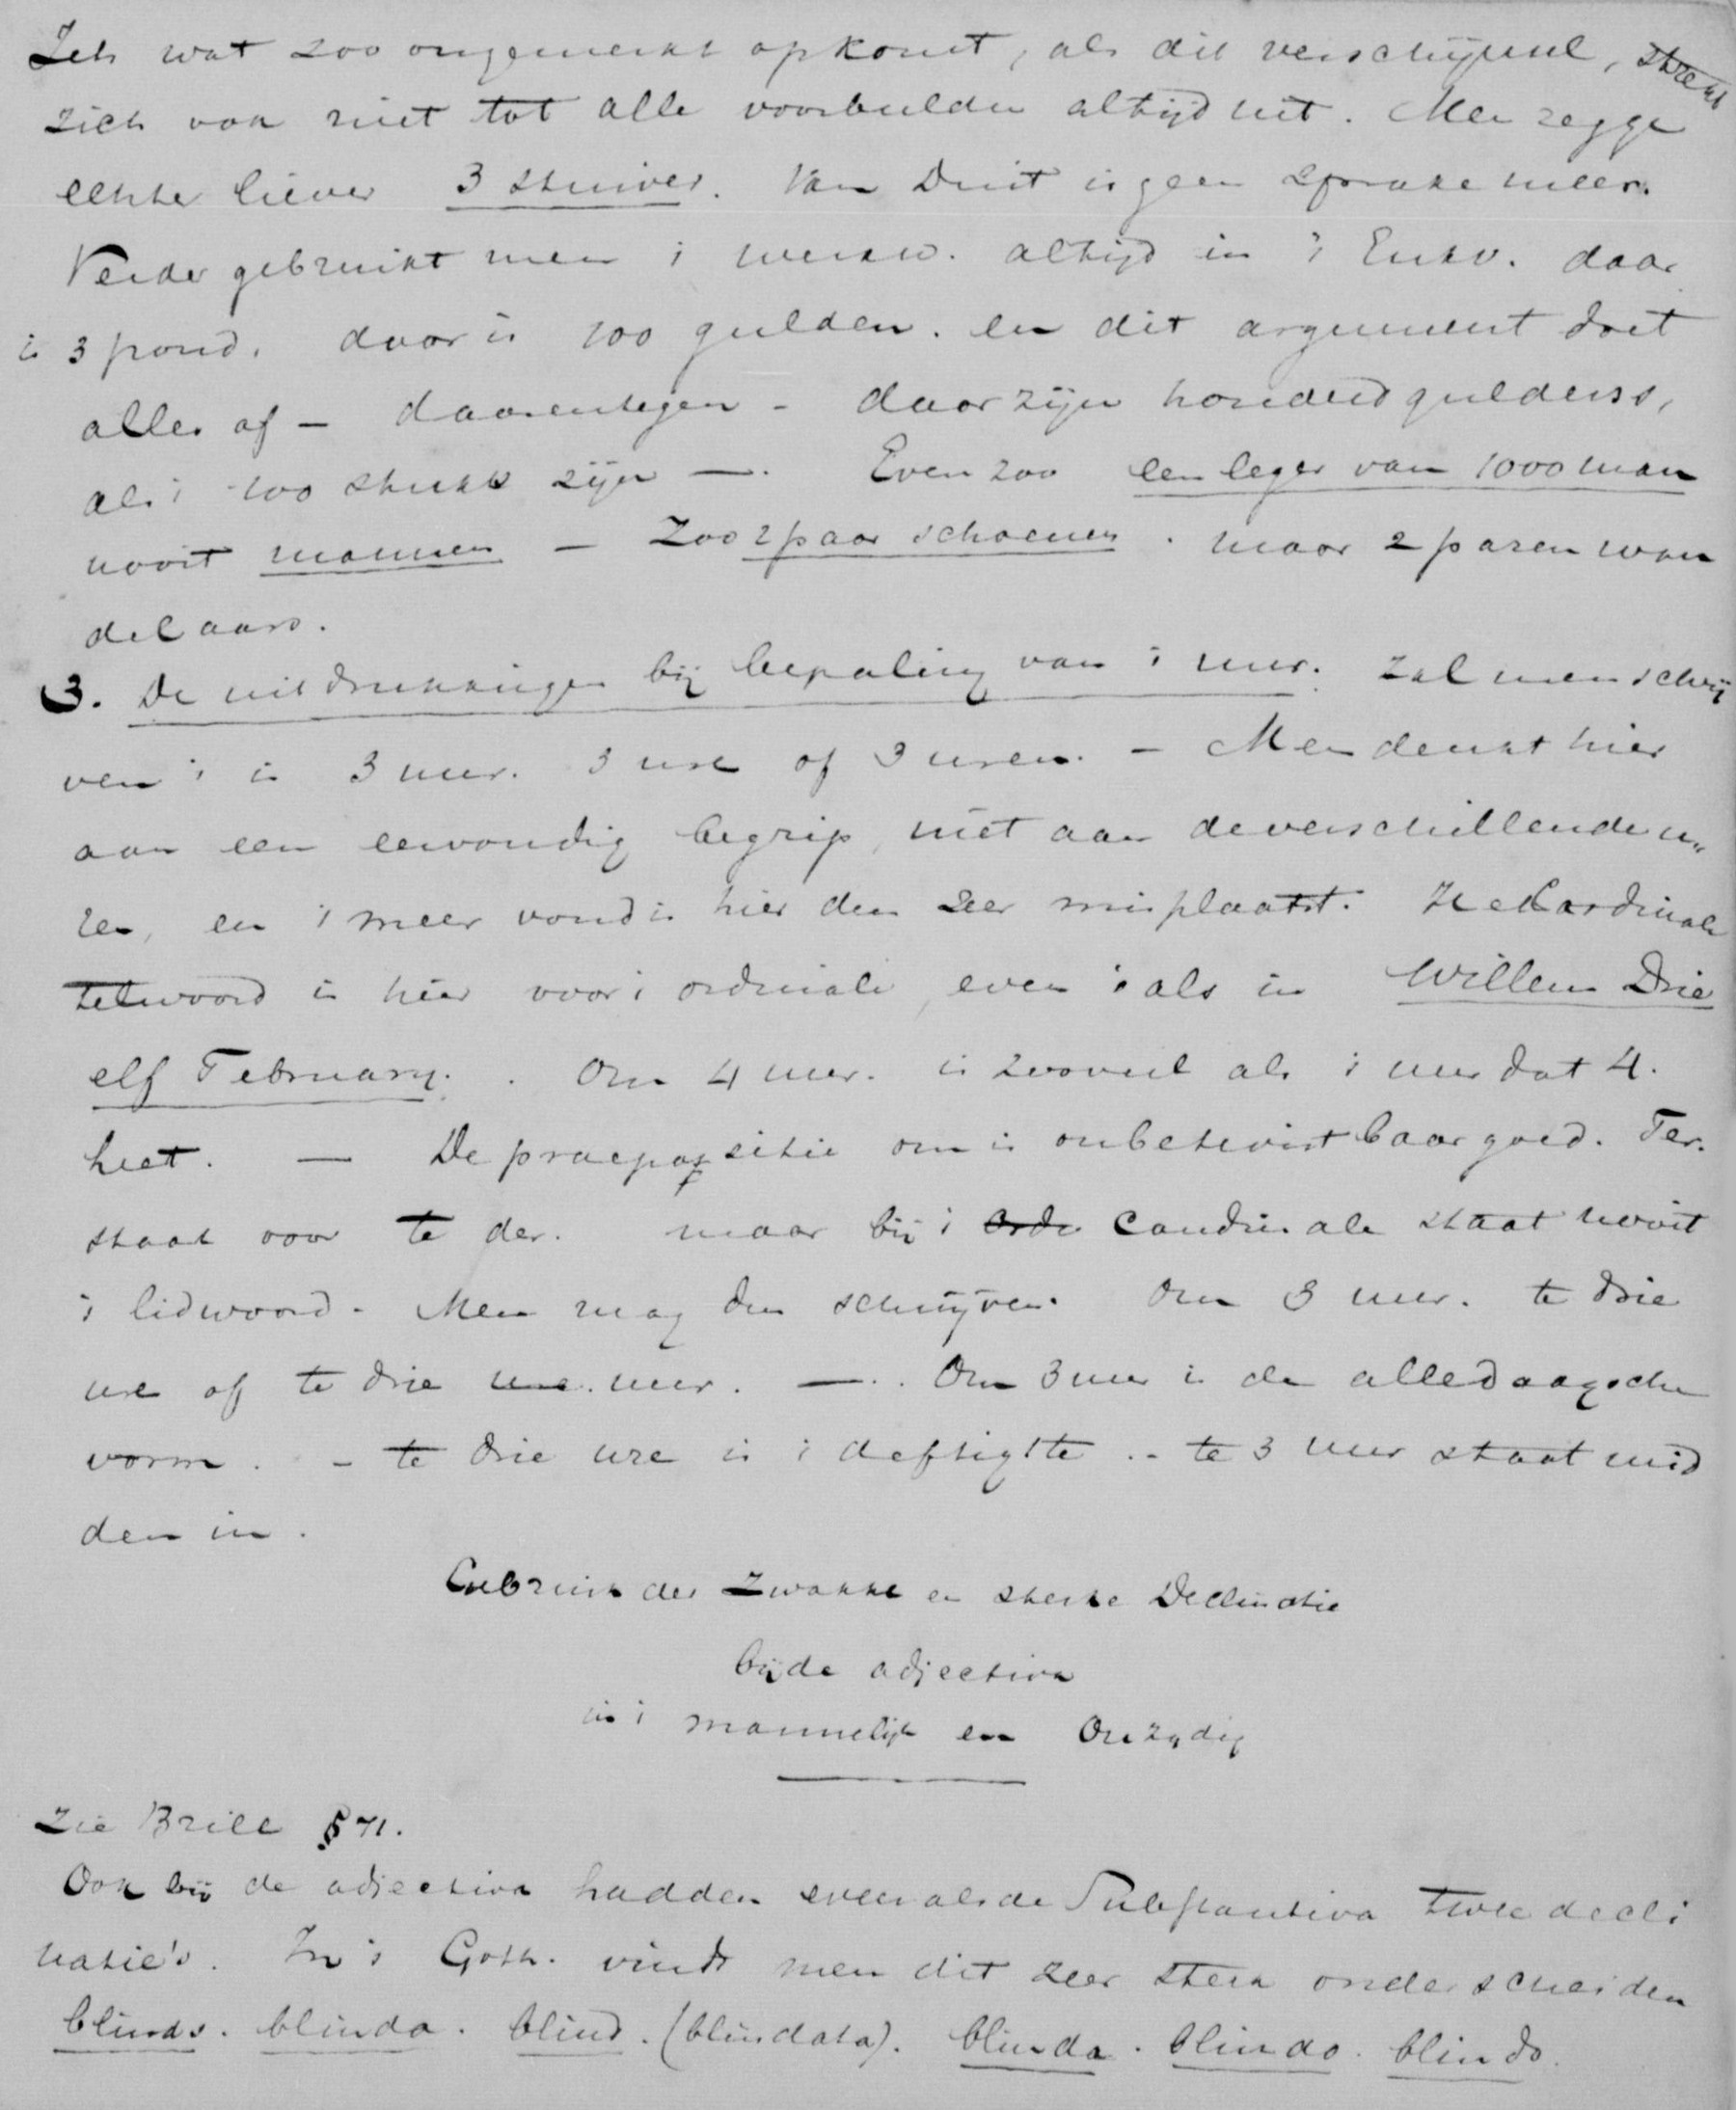 Iets wat zoo ongemerkt opkomt, als dit verschijnsel, strekt
zich ook niet tot alle voorbeelden altijd uit. Men zegge
echter liever 3 stuiver. Van Duit is geen sprake meer.
Verder gebruikt men 't werkw. altijd in 't Enkv. daar
is 3 pond, daar is 100 gulden. en dit argument doet
alles af – daarentegen – daar zijn honderd guldens,
als 't 100 stuks zijn —. Even zoo een leger van 1000 man
nooit mannen – Zoo 2 paar schoenen . maar 2 paren wan
delaars.
3. De uitdrukkingen bij bepaling van 't uur. Zal men schrij
ven 't is 3 uur. 3 ure of 3 uren. – Men denkt hier
aan een eenvoudig begrip, niet aan de verschillende u„
ren, en 't meervoud is hier dus zeer misplaatst. Het Cardinale
telwoord is hier voor 't ordinale, even 's als in Willem Drie
elf February. . Om 4 uur. is zooveel als 't uur dat 4.
heet. — De praepositie om is onbetwistbaar goed. Ter.
staat voor te der. maar bij 't Orde Cardinale staat nooit
't lidwoord. Men mag dus schrijven. Om 3 uur. te drie
ure of te drie ure. uur. —. . Om 3 uur is de alledaagsche
vorm. – te drie ure is 't deftigste .- te 3 uur staat mid
den in.
Gebruik der Zwakke en sterke Declinatie
bij de adjectiva
in 't mannelijk en Onzydig
Zie Brill § 71.
Ook bij de adjectiva hadden evenals de Substantiva twee decli
natie's. In 't Goth. vindt men dit zeer sterk onderscheiden
blinds. blinda. blind. (blindata). blinda. blindo. blindo.